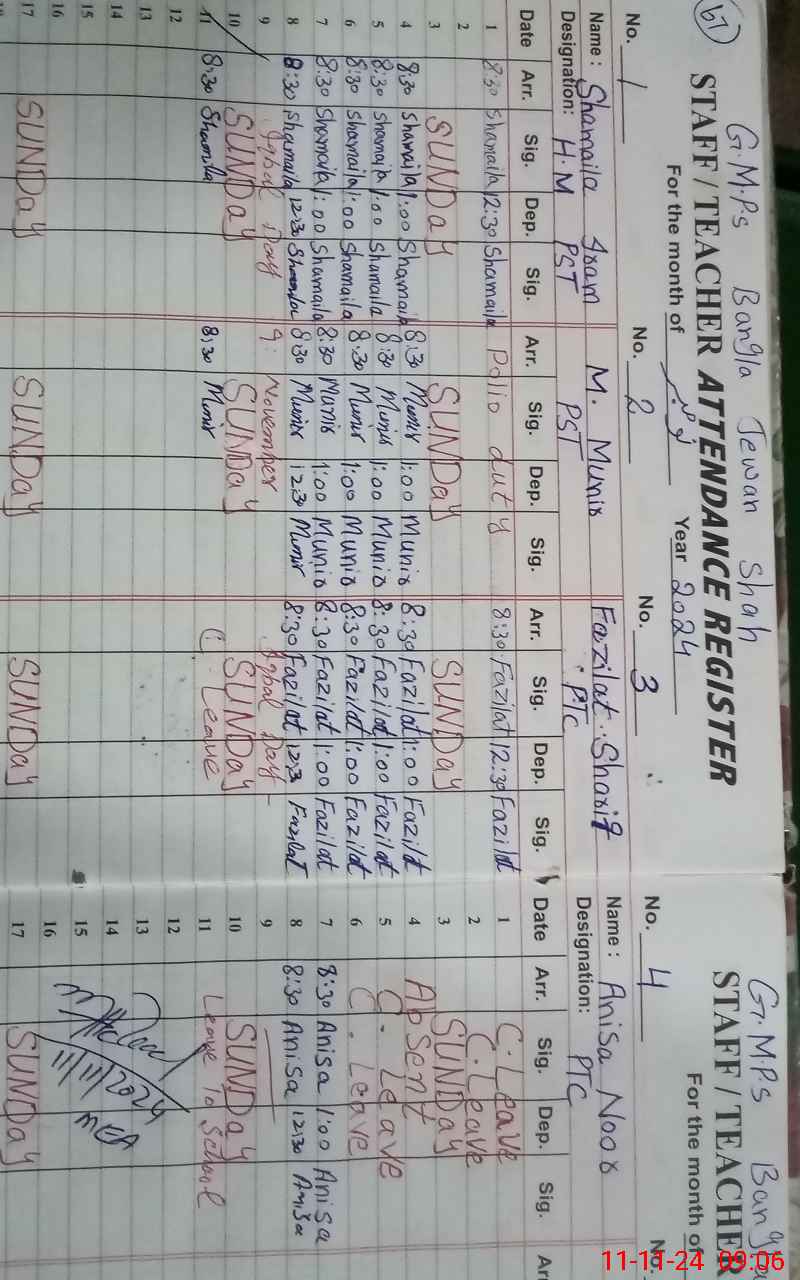 67
G.M.P.s Bangla Jewan Shah
STAFF / TEACHER ATTENDANCE REGISTER
For the month of نومبر Year 2024
No. 1 No. 2 No. 3
Name : Shamaila Iram M. Munir Fazilat Sharif
Designation: H.M PST PST PTC
Date Arr. Sig. Dep. Sig. Arr. Sig. Dep. Sig. Arr. Sig. Dep. Sig.
1 8:30 Shamaila 12:30 Shamaila Polio duty 8:30 Fazilat 12:30 Fazilat
2
3 SUNDay SUNDay SUNDay
4 8:30 Shamaila 1:00 Shamaila 8:30 Munir 1:00 Munir 8:30 Fazilat 1:00 Fazilat
5 8:30 Shamaila 1:00 Shamaila 8:30 Munir 1:00 Munir 8:30 Fazilat 1:00 Fazilat
6 8:30 Shamaila 1:00 Shamaila 8:30 Munir 1:00 Munir 8:30 Fazilat 1:00 Fazilat
7 8:30 Shamaila 1:00 Shamaila 8:30 Munir 1:00 Munir 8:30 Fazilat 1:00 Fazilat
8 8:30 Shamaila 12:30 Shamaila 8:30 Munir 12:30 Munir 8:30 Fazilat 12:3 Fazilat
9 Iqbal Day 9: November Iqbal Day
10 SUNDay SUNDay SUNDay
11 8:30 Shamila 8:30 Munir C. Leave
12
13
14
15
16
17 SUNDay SUNDay SUNDay
G.M.P.s Bangla
STAFF / TEACHER
For the month of
No. 4 No.
Name : Anisa Noor
Designation: PTC
Date Arr. Sig. Dep. Sig. Arr
1 C. Leave
2 C. Leave
3 SUNDay
4 Absent
5 C. Leave
6 C. Leave
7 8:30 Anisa 1:00 Anisa
8 8:30 Anisa 12:30 Anisa
9
10 SUNDay
11 Leave To School
12
13
14
15 11/11/2024
16 MEA
17 SUNDay
11-11-24 09:06